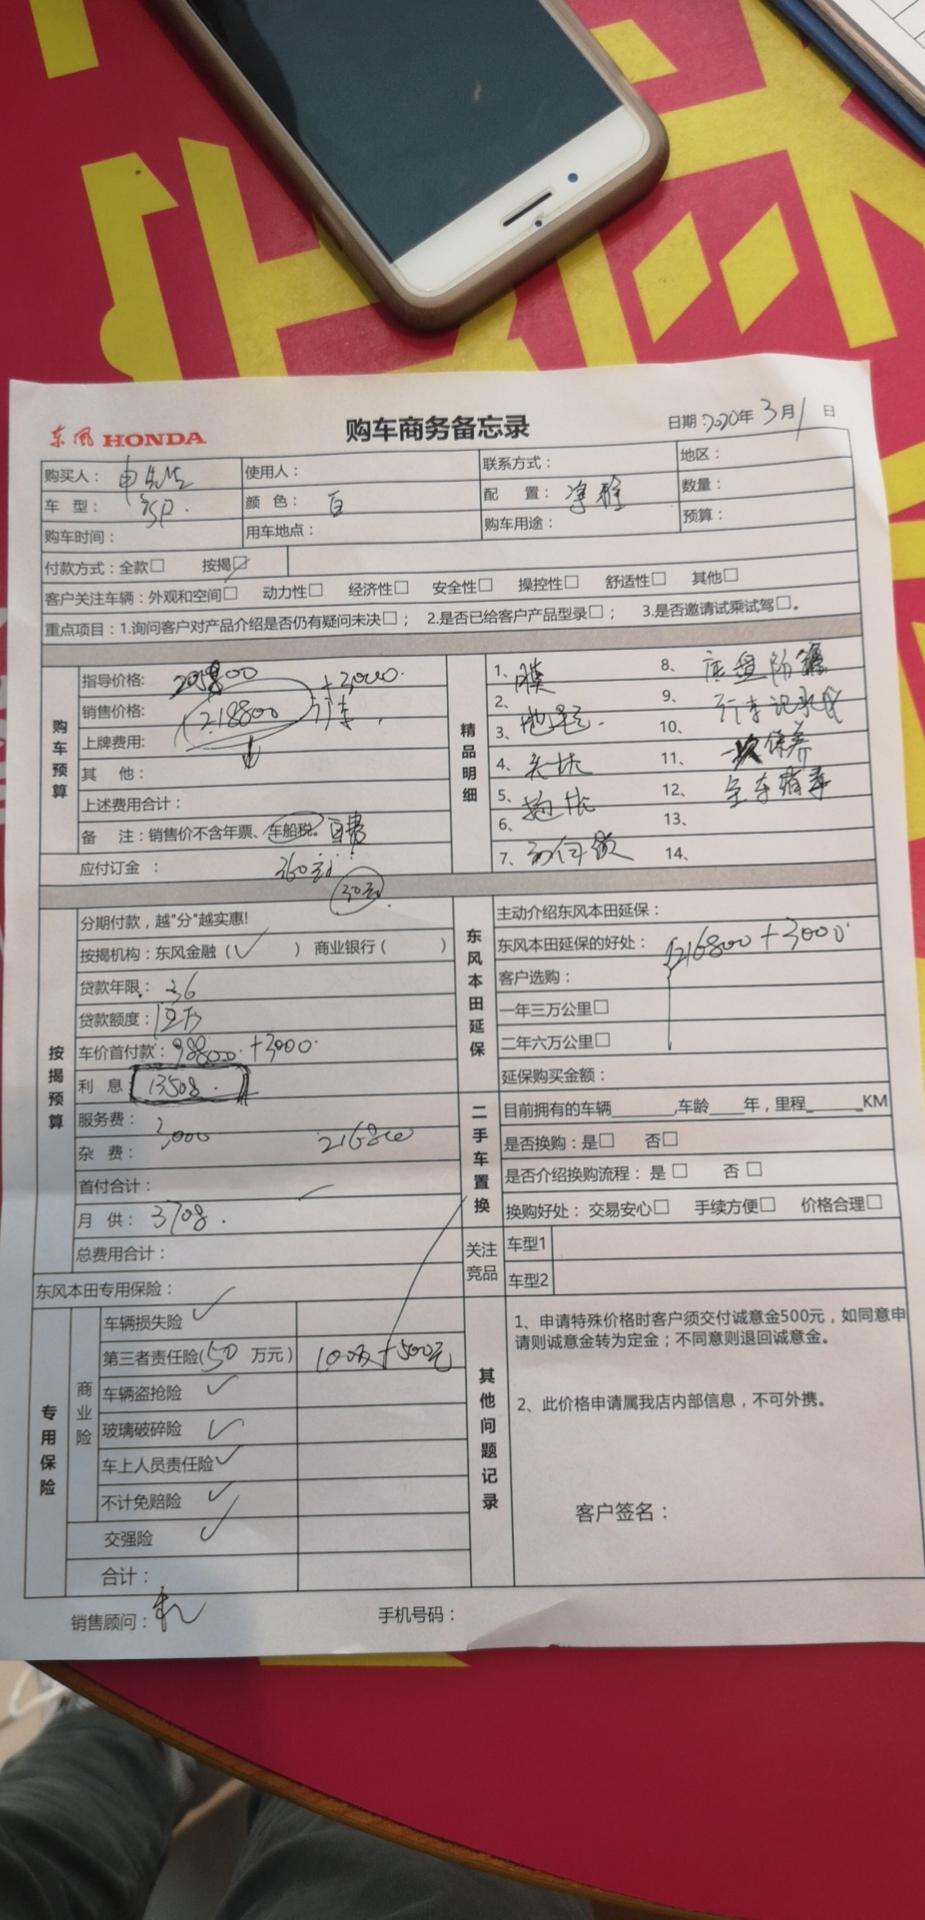 东风 HONDA
购车商务备忘录
日期:2020年 3月1日
购买人: 申先生 使用人: 联系方式: 地区:
车 型: 颜 色: 白 配 置: 净 数量:
购车时间: 用车地点: 购车用途: 预算:
付款方式:全款□ 按揭☑
客户关注车辆:外观和空间□ 动力性□ 经济性□ 安全性□ 操控性□ 舒适性□ 其他□
重点项目:1.询问客户对产品介绍是否仍有疑问未决□; 2.是否已给客户产品型录□; 3.是否邀请试乘试驾□。
购车预算
指导价格: +3000.
销售价格: 218800
上牌费用:
其 他:
上述费用合计:
备 注:销售价不含年票、车船税。自费
应付订金 : 360元
30元
精品明细
1、膜
2、
3、地毯
4、头枕
5、抱枕
6、
7、
8、底盘防
9、行车记录仪
10、
11、一次保养
12、全车
13、
14、
按揭预算
分期付款,越"分"越实惠!
按揭机构:东风金融(✓) 商业银行( )
贷款年限: 36
贷款额度: 12万
车价首付款: 98800 +3000.
利 息 13508.
服务费: 3000
杂 费: 216800
首付合计:
月 供: 3708.
总费用合计:
东风本田延保
主动介绍东风本田延保:
东风本田延保的好处: 216800+3000
客户选购:
一年三万公里□
二年六万公里□
延保购买金额:
二手车置换
目前拥有的车辆______,车龄____年,里程______KM
是否换购:是□ 否□
是否介绍换购流程:是□ 否□
换购好处:交易安心□ 手续方便□ 价格合理□
关注竞品
车型1
车型2
东风本田专用保险:
专用保险
商业险
车辆损失险 ✓
第三者责任险(50 万元) 100万+500元
车辆盗抢险 ✓
玻璃破碎险 ✓
车上人员责任险 ✓
不计免赔险 ✓
交强险 ✓
合计:
其他问题记录
1、申请特殊价格时客户须交付诚意金500元,如同意申
请则诚意金转为定金;不同意则退回诚意金。
2、此价格申请属我店内部信息,不可外携。
客户签名:
销售顾问: 手机号码: